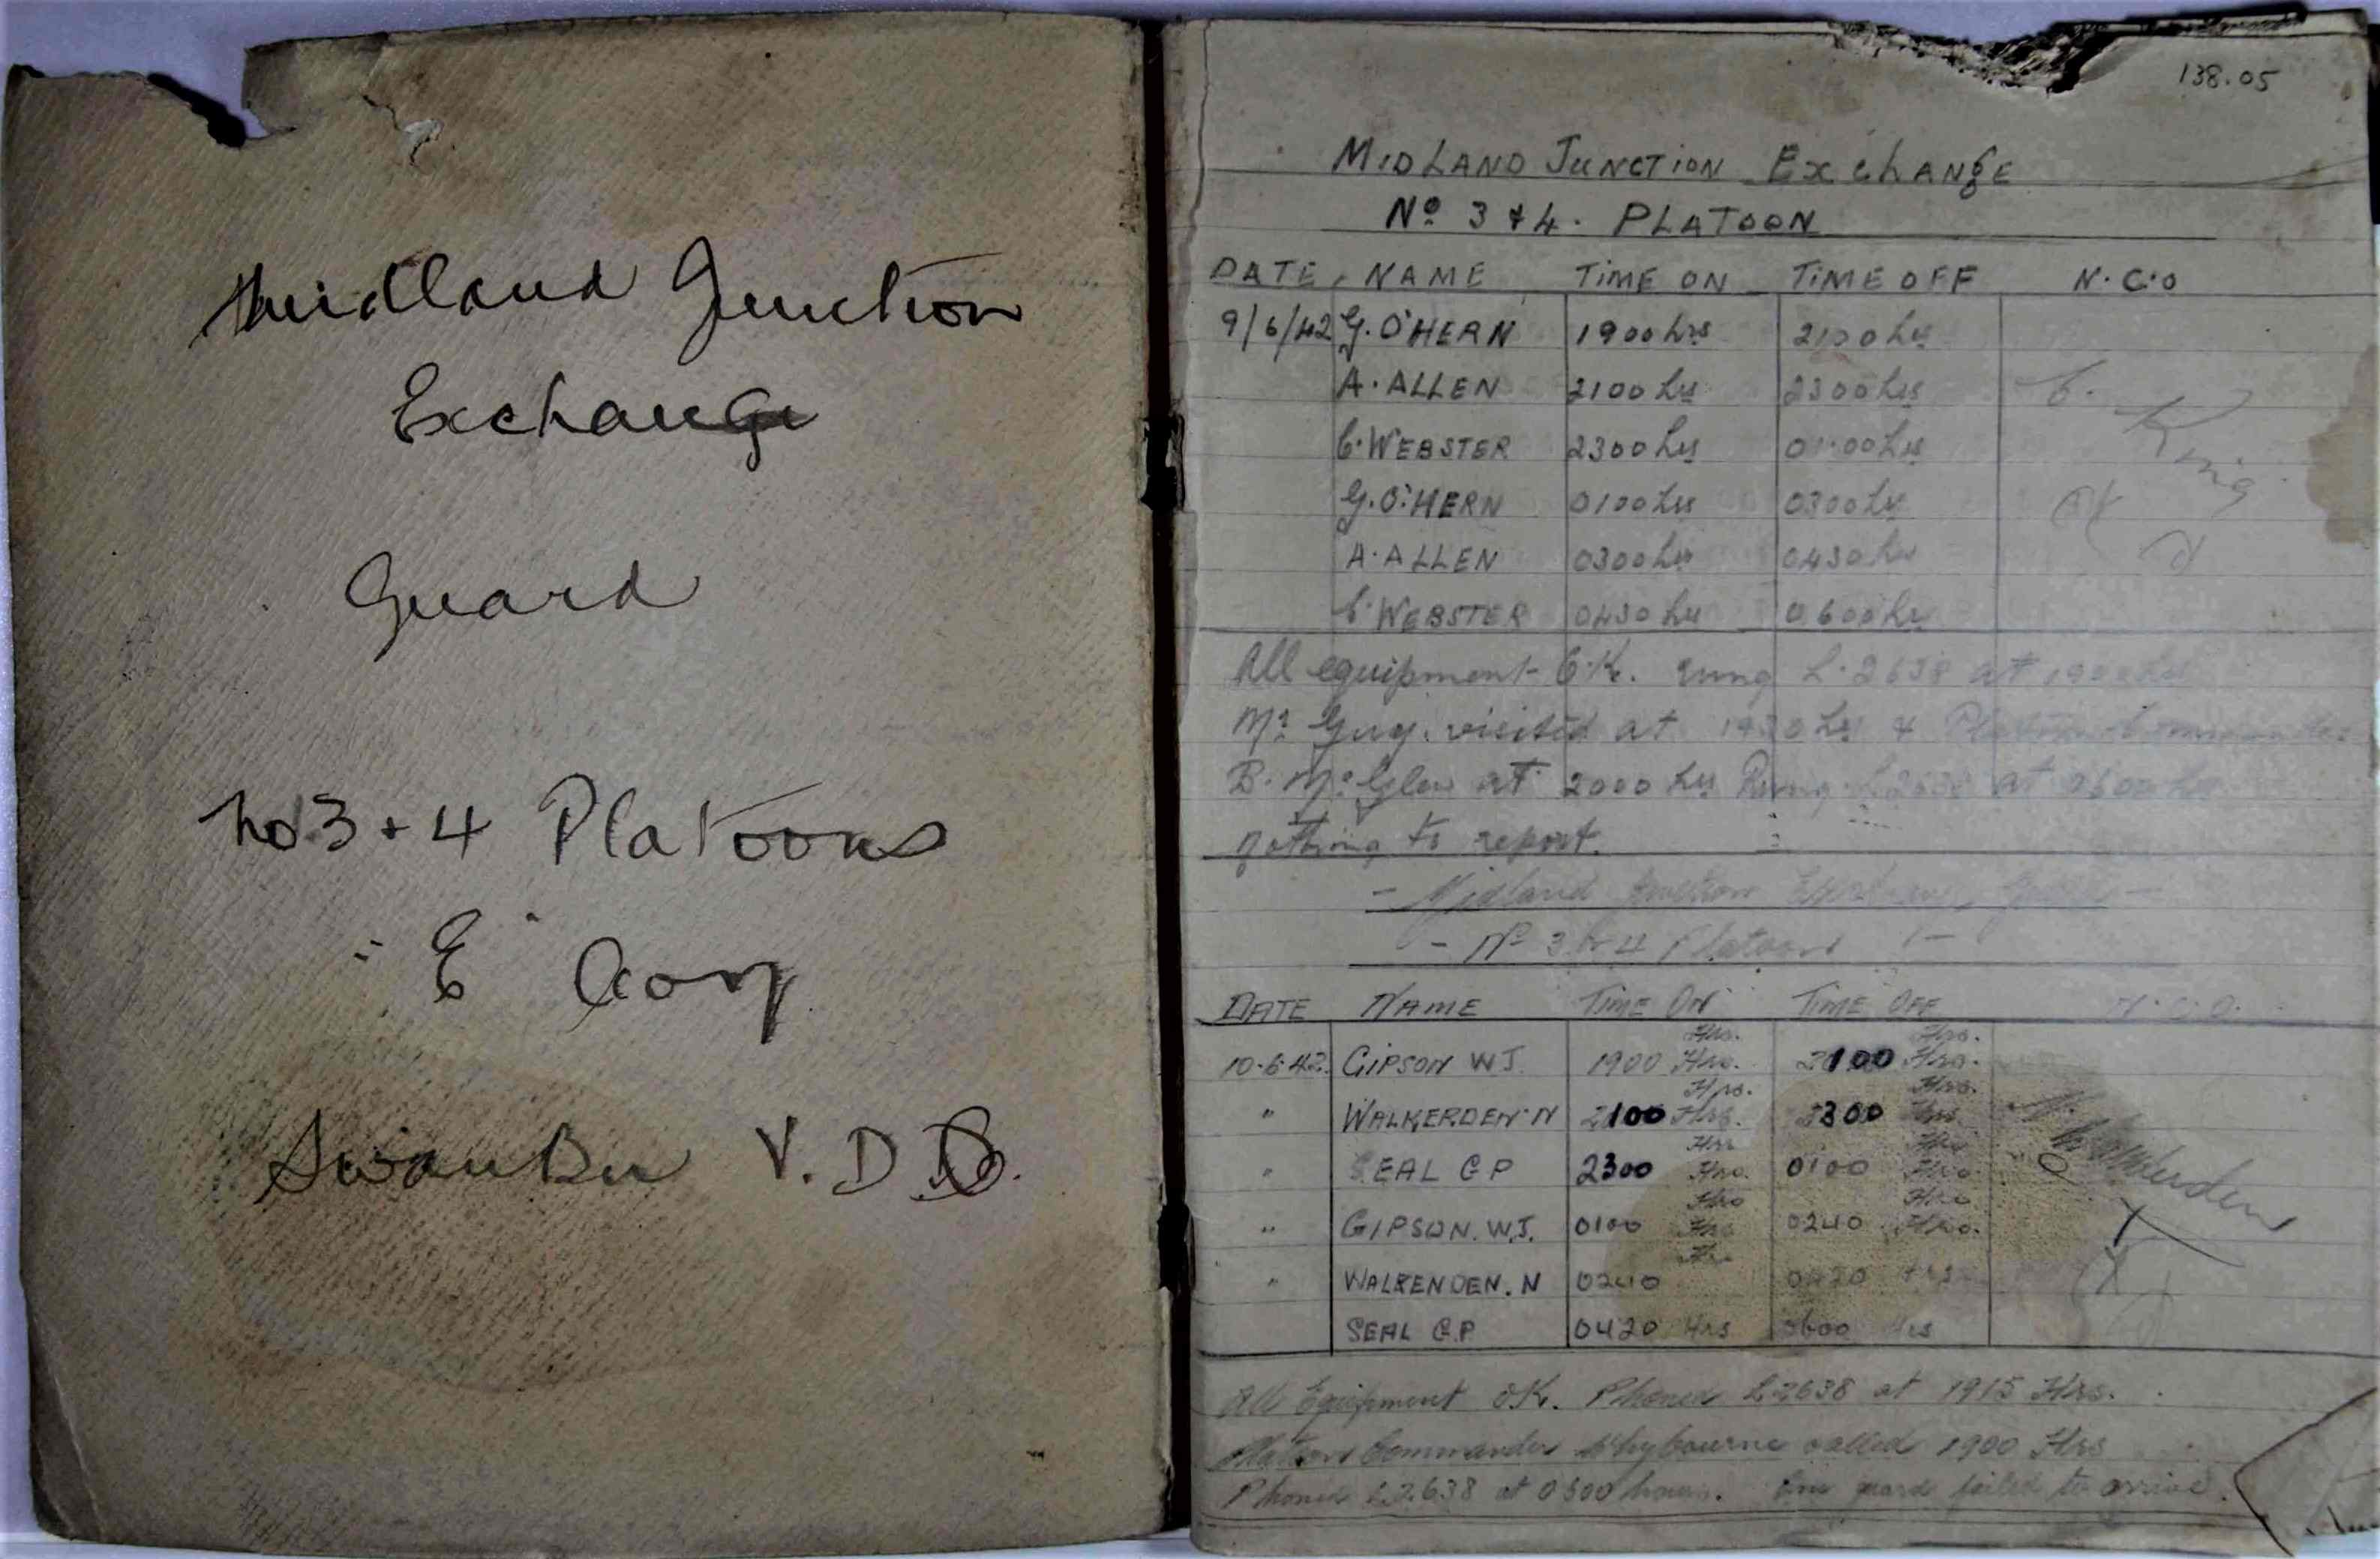 Midland Junction
Exchange
Guard
No 3 + 4 Platoons
"E" Coy
Swan Bn V.D.C.
138.05
MIDLAND JUNCTION EXCHANGE
No 3 & 4. PLATOON
DATE NAME TIME ON TIME OFF N.C.O
9/6/42 G. O'HERN 1900 hrs 2100 hrs
A. ALLEN 2100 hrs 2300 hrs C.
C. WEBSTER 2300 hrs 01.00 hrs King
G. O'HERN 0100 hrs 0300 hrs
A. ALLEN 0300 hrs 0430 hrs
C. WEBSTER 0430 hrs 0600 hrs
All equipment O.K. rung L.2638 at 1900 hrs
Mr Guy. visited at 1930 hrs & Platoon Commander
B. at 2000 hrs Rung L2638 at 0600 hrs
nothing to report.
- Midland Junction Exchange Guard -
- No 3 & 4 Platoons -
DATE NAME TIME ON TIME OFF N.C.O.
Hrs. Hrs.
10.6.42 GIPSON W J. 1900 Hrs. 2100 Hrs.
Hrs. Hrs.
" WALKERDEN N 2100 Hrs. 2300 Hrs.
Hrs Hrs
" SEAL G P 2300 Hrs. 0100 Hrs N. Walkerden
Hrs Hrs
" GIPSON. W.J. 0100 Hrs 0240 Hrs.
Hrs
" WALKENDEN. N 0240 0420 Hrs
SEAL G.P 0420 Hrs 0600 Hrs
All Equipment OK. Phoned L2638 at 1915 Hrs.
Platoon Commander Whybourne called 1900 Hrs
Phoned L2638 at 0500 hours. One guard failed to arrive.